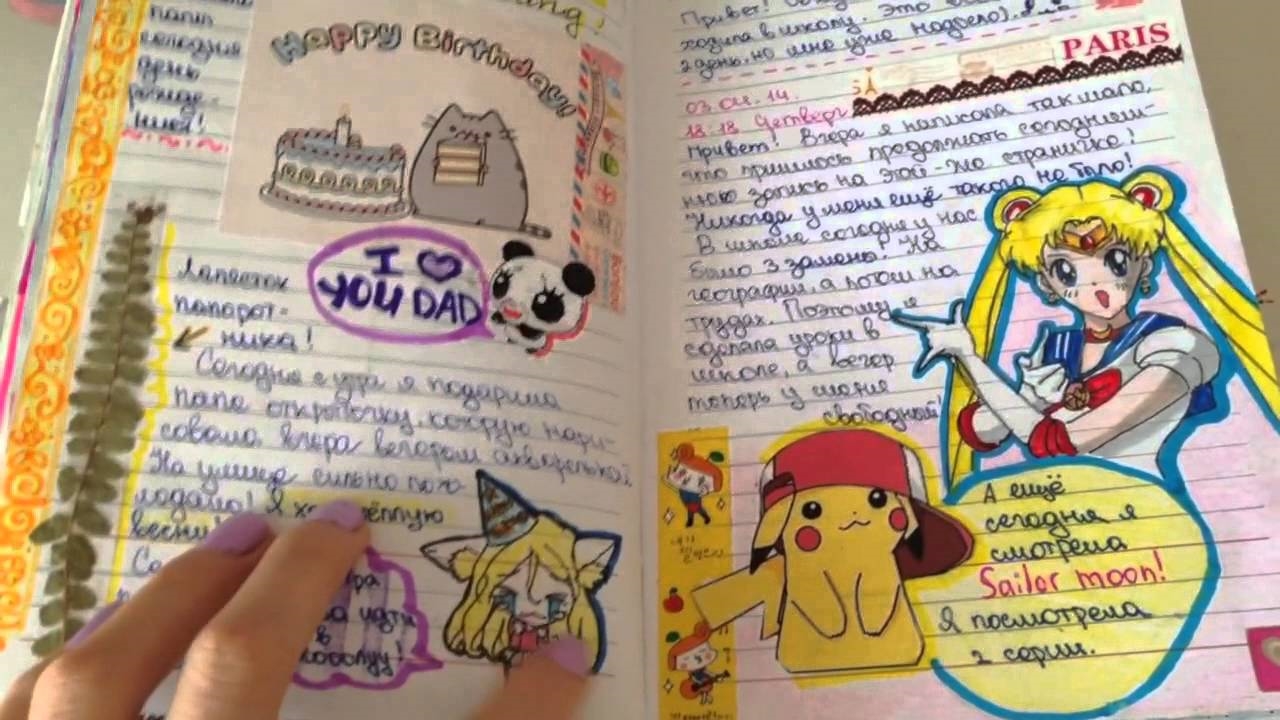 папы
сегодня
день
рожде-
ния!
Happy Birthday!
I
YOU DAD
Лепесток
папорот-
ника!
Сегодня с утра я подарила
папе открыточку, которую нари-
совала вчера вечером акварелью.
На улице сильно похо-
лодало! Я
весны
идти
в
Привет!
ходила в школу. Это
2 день, но мне уже надоело).
PARIS
03.04.14.
18:18 Четверг
Привет! Вчера я написала так мало,
что пришлось продолжать сегодняш-
нюю запись на этой-же страничке!
Никогда у меня ещё такого не было!
В школе сегодня у нас
было 3 замены! На
географии, а потом на
трудах. Поэтому я
сделала уроки в
школе, а вечер
теперь у меня
свободный!
А ещё
сегодня я
смотрела
Sailor moon!
Я посмотрела
2 серии.